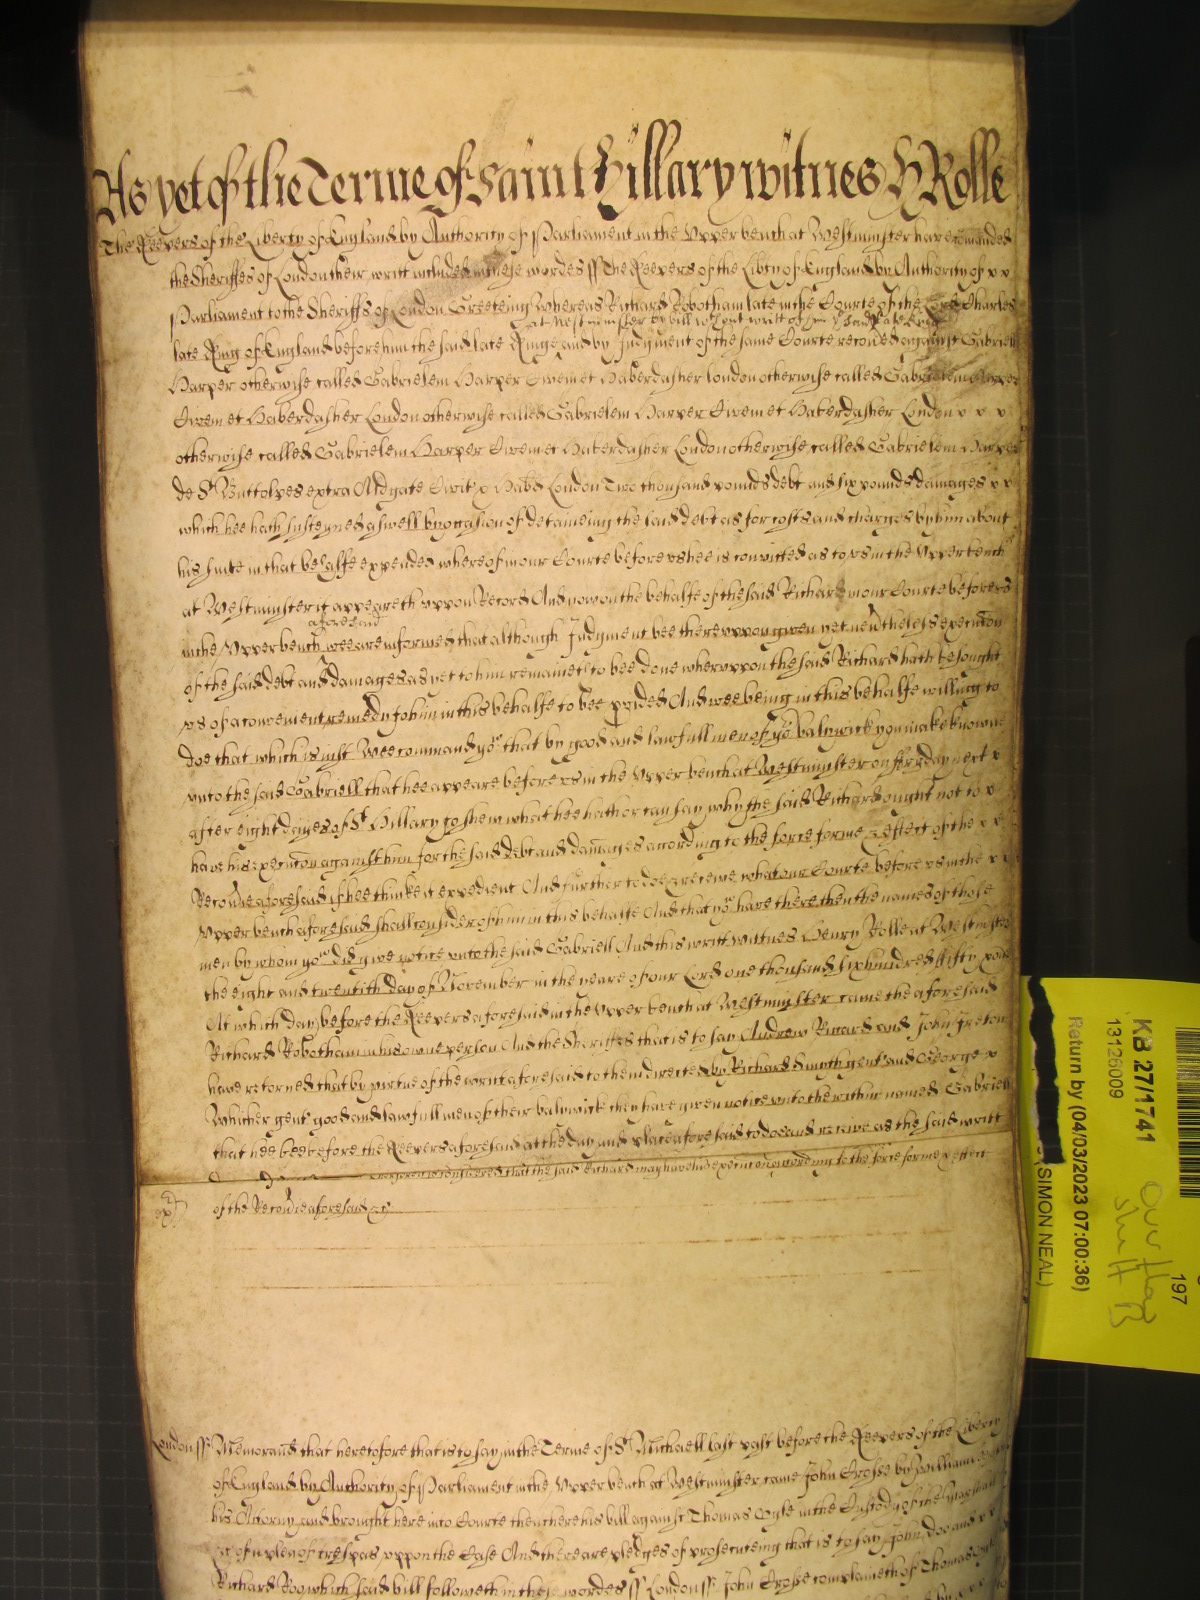 As yet of the Terme of Saint Hillary witnes H Rolle
The Keepers of the Liberty of England by Authority of Parliament in the Upper bench at Westminster have comanded
the Sheriffes of London their writt included in these wordes ss The Keepers of the Libty of England by Authority of x x
Parliament to the Sheriffs of London Greeteing Whereas Richard Robotham late in the Courte of the Lord Charles
at Westminster by bill without writt of him the said late King
late King of England before him the said late Kinge and by Judgment of the same Courte recoved against Gabriell
Harper otherwise called Gabrielem Harper Civem et Haberdasher london otherwise called Gabrielem Harper
Civem et Haberdasher London otherwise called Gabrielem Harper Civem et Haberdasher London x x x
otherwise called Gabrielem Harper Civem et Haberdasher London otherwise called Gabrielem Harper
de St Buttolpes extra Aldgate Civit x Habd London Two thousand pounds debt and six pounds damages x x
which hee hath susteyned aswell by occasion of detaineing the said debt as for costs and charges by him about
his suite in that behalfe expended whereof in our Courte before us hee is convicted as to us in the Upper bench
at Westminster it appeareth uppon Record And now on the behalfe of the said Richard in our Courte before us
aforesaid
in the Upper bench wee are informed that although Judgment bee thereuppon given yet nevtheles execucon
of the said debt and damages as yet to him remaineth to bee done whereuppon the said Richard hath besought
us of a convenient remedy for him in this behalfe to bee pvided And wee being in this behalfe willing to
doe that which is iust Wee command yow that by good and lawfull men of yor balywick you make knowne
unto the said Gabriell that hee appeare before us in the Upper bench at Westminster on ffryday next x
after eight dayes of St Hillary to shew what hee hath or can say why the said Richard ought not to x
have his execucon against him for the said debt and damages according to the force forme & effect of the x x
Recovie aforesaid if hee thinke it expedient And further to doe & receive what our Courte before us in the x x
Upper bench aforesaid shall consider of him in this behalfe And that yow have there then the names of those
men by whom yow did give notice unto the said Gabriell And this writt witnes Henry Rolle at Westminster
the eight and twentith day of November in the yeare of our Lord one thousand six hundred fifty x one
At which day before the Keepers aforesaid in the Upper bench at Westminster came the aforesaid
Richard Robotham in his owne person And the Sheriffes that is to say Andrew Ricard and John Ireton
have retorned that by virtue of the writt aforesaid to them directed by Richard Smyth gent and George x
Whither gent good and lawfull men of their balywick they have given notice unto the within named Gabriell
that hee bee before the Keepers aforesaid at the day and place aforesaid to doe and receive as the said writt
Therefore it is considered that the said Richard may have his execucon according to the force forme & effect
of the Recovie aforesaid &c
London ss Memorand that heretofore that is to say in the Terme of St Michaell last past before the Keepers of the Liberty
of England by Authority of Parliament in the Upper bench at Westminster came John Crosse by William
his Attorny and brought here into Courte then there his bill against Thomas Coyle in the Custody of the Marshall
&c of a plea of trespas uppon the Case And there are pledges of prosecuteing that is to say John Doo and x x
Richard Roo which said bill followeth in these wordes ss London ss John Crosse complaineth of Thomas
KB 27/1741
13126009
Return by (04/03/2023 07:00:36)
(SIMON NEAL)
197